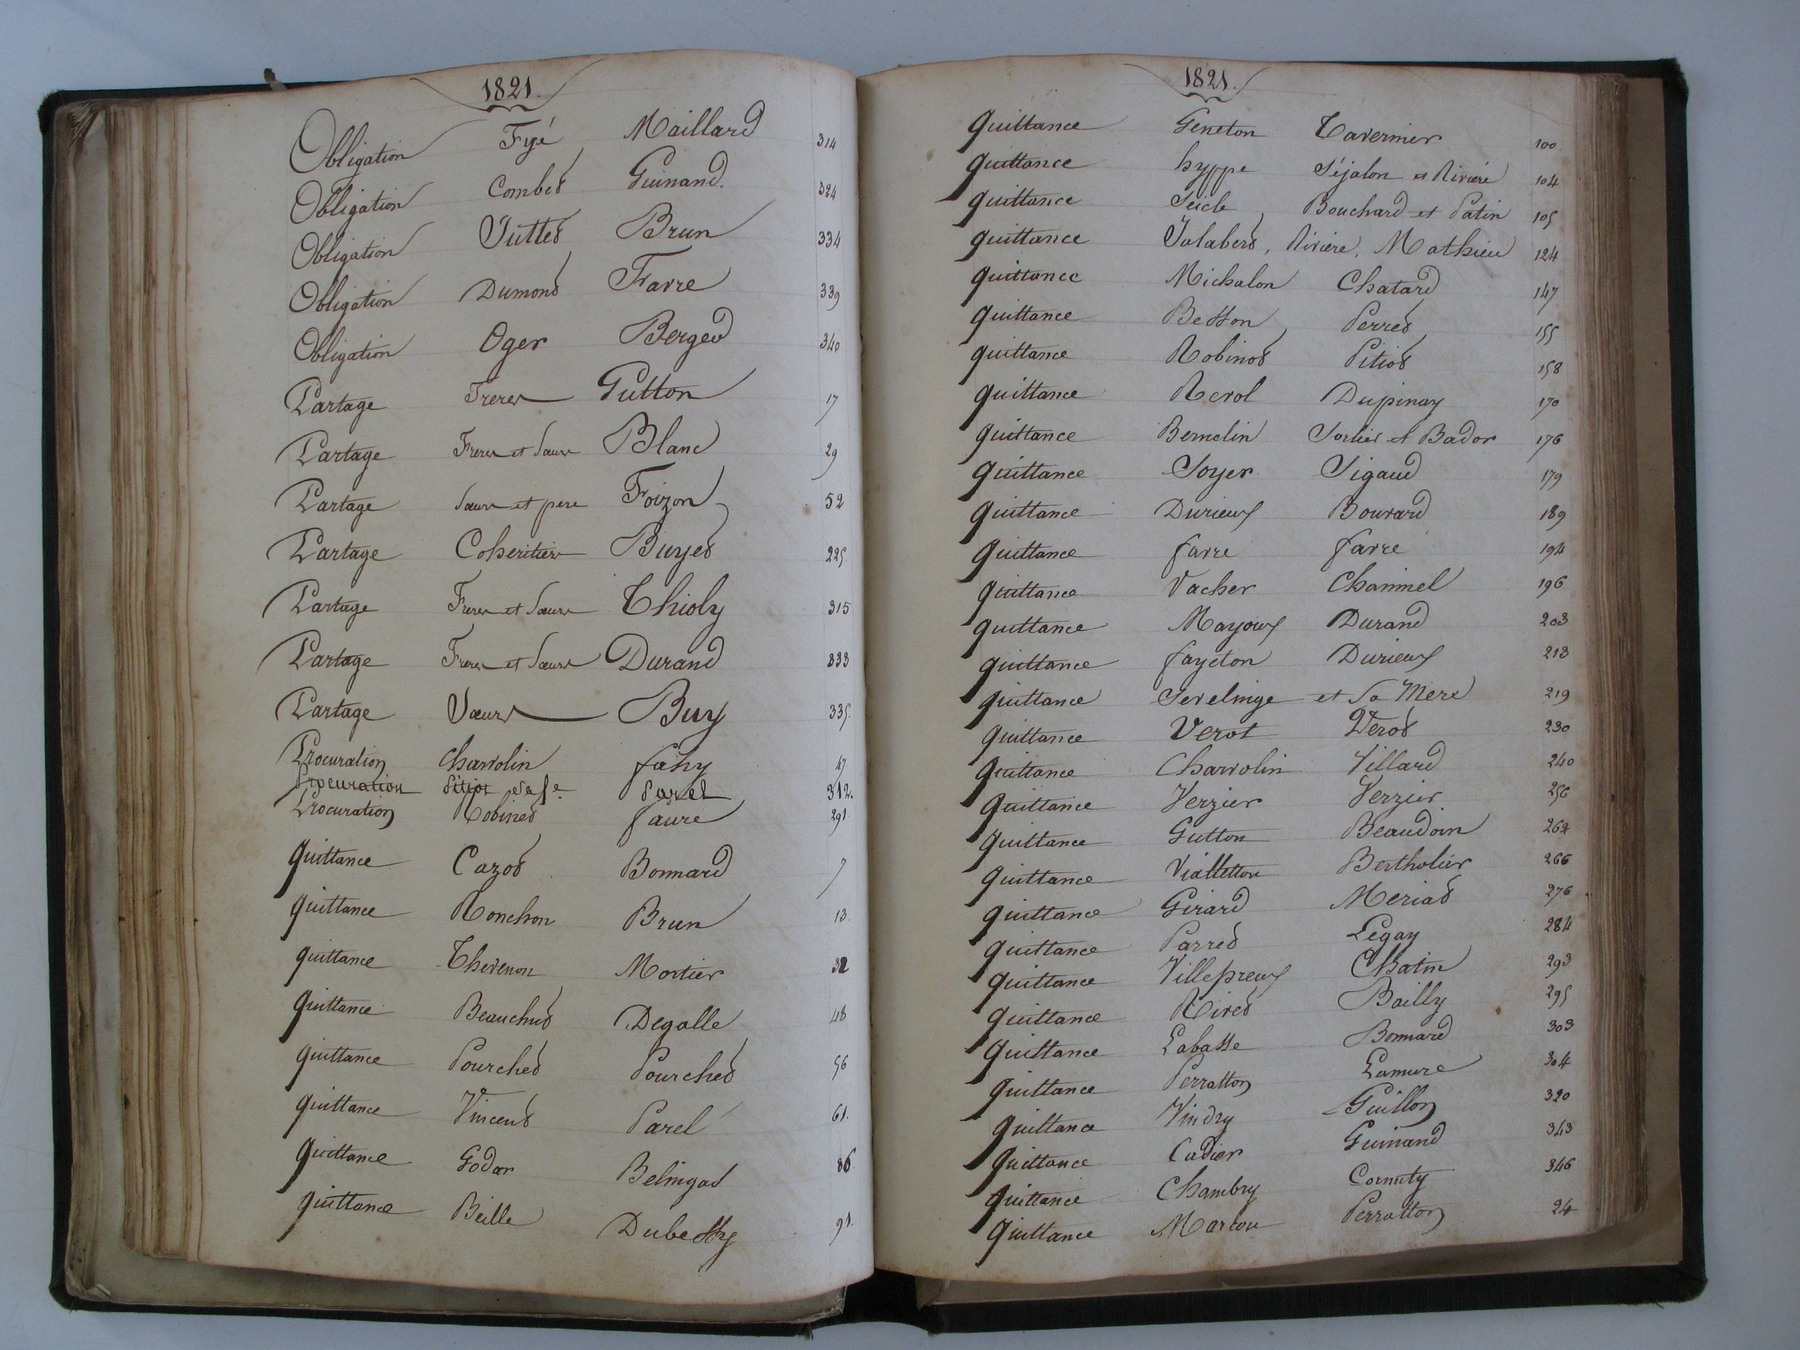 1821.
Obligation Fyé Maillard 314
Obligation Combet Guinand. 324
Obligation Juttet Brun 334
Obligation Dumont Favre 339
Obligation Oger Berget 340
Partage Freres Gutton 17
Partage Freres et Sœurs Blanc 29
Partage Sœurs et pere Foizon 52
Partage Coheritiers Buyet 225
Partage Freres et Sœurs Thioly 315
Partage Freres et Sœurs Durand 333
Partage Sœurs Buy 335
Procuration Charvolin fahy 47
Procuration Pitiot 312.
Procuration Robinet faure 291
Quittance Cazot Bonnard 7
Quittance Ronchon Brun 13
Quittance Thevenon Mortier 32
Quittance Beauchut Degalle 48
Quittance Pourchet Pourchet 56
Quittance Vincent Parel 61.
Quittance Godar Belingat 86
Quittance Beille Dubessy 91.
1821.
Quittance Geneton Tavernier 100
Quittance hyppe Séjalon et Riviere 104
Quittance Seicle Bouchard et Patin 105
Quittance Jalabert, Riviere, Mathieu 124
Quittance Michalon Chatard 147
Quittance Besson Perret 155
Quittance Robinot Pitiot 158
Quittance Rerol Dupinay 170
Quittance Bemelin Sorlier et Bador 176
Quittance Soyer Sigaud 179
Quittance Durieux Bouvard 189
Quittance farre farre 194
Quittance Vacher Chammel 196
Quittance Mayoux Durand 203
Quittance fayeton Durieux 213
Quittance Sevelinge et Sa Mere 219
Quittance Verot Verot 230
Quittance Charvolin Villard 240
Quittance Verzier Verzier 256
Quittance Gutton Beaudoin 262
Quittance Vialletton Bertholier 266
Quittance Girard Meriat 276
Quittance Parret Legay 284
Quittance Villepreux Chatin 293
Quittance Rivet Bailly 295
Quittance Labasse Bonnard 303
Quittance Perratton Lamure 304
Quittance Vindry Guillon 320
Quittance Cadier Guinand 343
Quittance Chambry Cornuty 346
Quittance Marcou Perratton 24